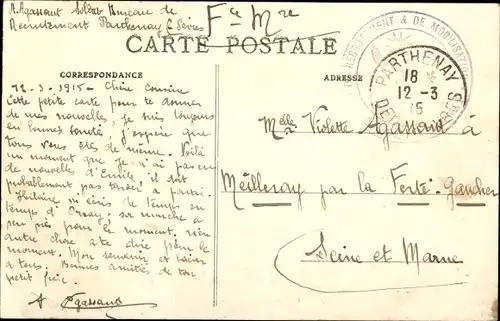 A. Agassant Soldat Bureau de
Recrutement Parthenay 2 Sèvres
Fce Mre
CARTE POSTALE
RECRUTEMENT & DE MOBILISATION
PARTHENAY
18 *
12-3
15
DEUX SEVRES
CORRESPONDANCE
ADRESSE
12-3-1915- Chère Cousine
Cette petite carte pour te donner
de mes nouvelles, je suis toujours
en bonne santé, j'espère que
tous vous êtes de même. Voilà
un moment que je n'ai pas eu
de nouvelles d'Emile, il doit
probablement pas tarder a partir.
Hilaire m'écris de temps en
temps d'Orsay.
mi près pour le moment, rien
autre chose a te dire pour le
moment. Mon souvenir et baiser
a tous. Bonnes amitiés de ton
petit
A Agassant
Melle Violette Agassant à
Meilleray par la Ferté-Gaucher
Seine et Marne